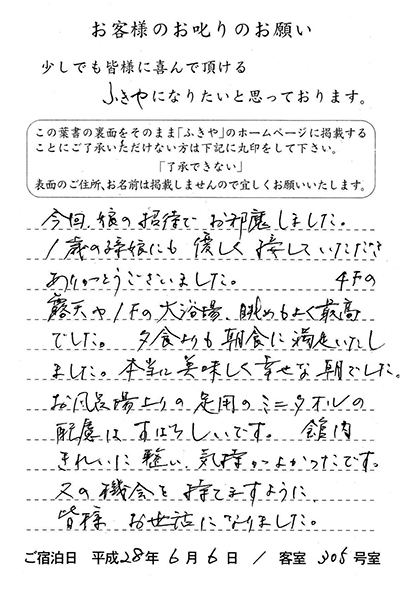 お客様のお叱りのお願い
少しでも皆様に喜んで頂ける
ふきやになりたいと思っております。
この葉書の裏面をそのまま「ふきや」のホームページに掲載する
ことにご了承いただけない方は下記に丸印をして下さい。
「了承できない」
表面のご住所、お名前は掲載しませんので宜しくお願いいたします。
今回、娘の招待でお邪魔しました。
1歳の孫娘にも優しく接していただき
ありがとうございました。 4Fの
露天や1Fの大浴場、眺めもよく最高
でした。 夕食よりも朝食に満足いたし
ました。本当に美味しく幸せな朝でした。
お風呂場上りの足用のミニタオルの
配慮はすばらしいです。 館内
きれいに整い、気持がよかったです。
又の機会を持てますように、
皆様 お世話になりました。
ご宿泊日 平成28年 6月 6日 / 客室 305号室